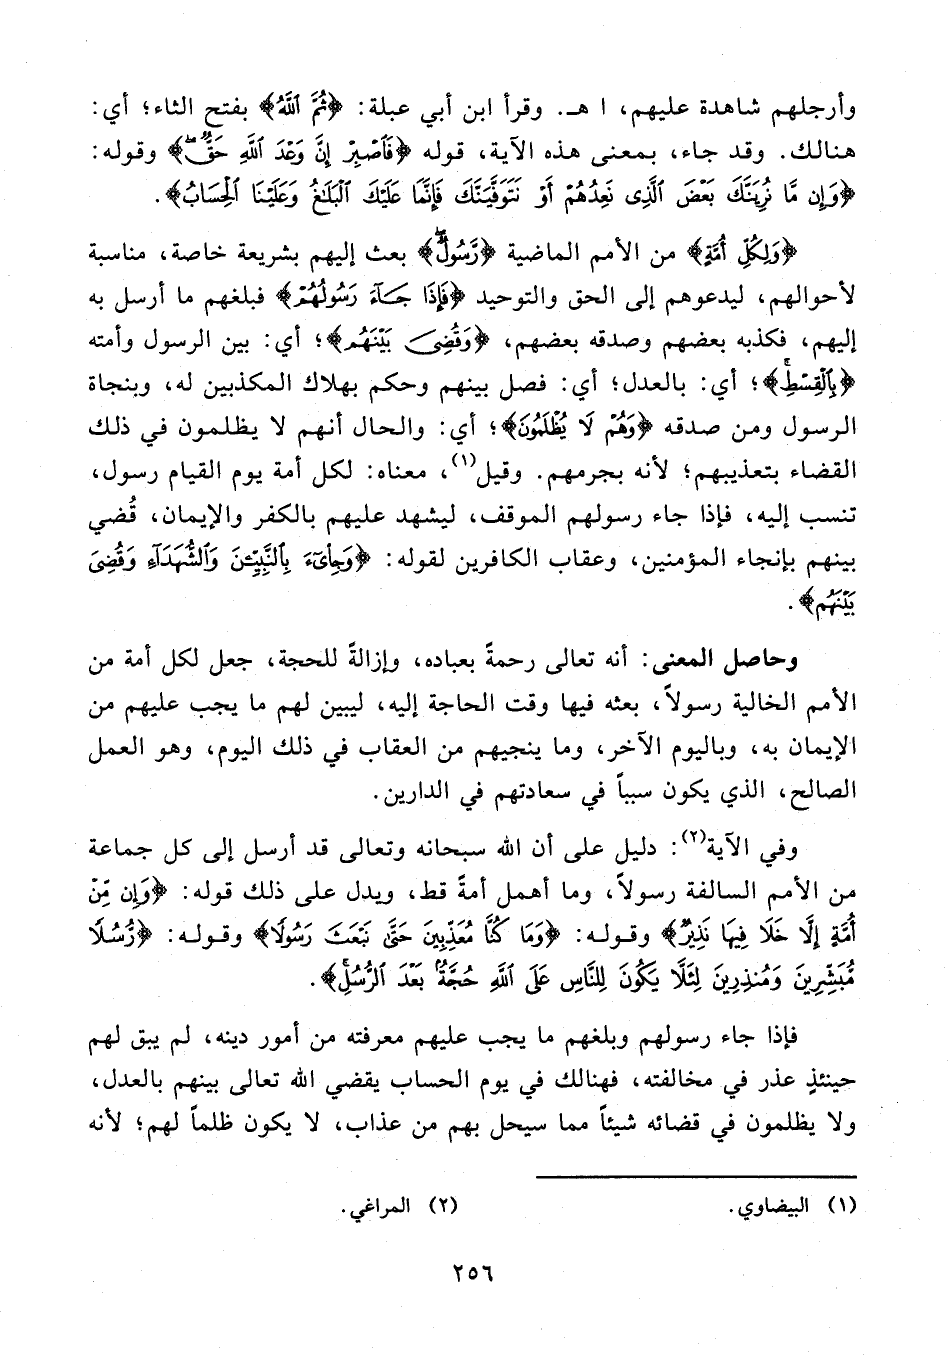 وأرجلهم شاهدة عليهم، ا هـ. وقرأ ابن أبي عبلة: ﴿ثَمَّ ٱللَّهُ﴾ بفتح الثاء؛ أي:
هنالك. وقد جاء، بمعنى هذه الآية، قوله ﴿فَٱصْبِرْ إِنَّ وَعْدَ ٱللَّهِ حَقٌّ﴾ وقوله:
﴿وَإِن مَّا نُرِيَنَّكَ بَعْضَ ٱلَّذِى نَعِدُهُمْ أَوْ نَتَوَفَّيَنَّكَ فَإِنَّمَا عَلَيْكَ ٱلْبَلَٰغُ وَعَلَيْنَا ٱلْحِسَابُ﴾.
﴿وَلِكُلِّ أُمَّةٍ﴾ من الأمم الماضية ﴿رَّسُولٌ﴾ بعث إليهم بشريعة خاصة، مناسبة
لأحوالهم، ليدعوهم إلى الحق والتوحيد ﴿فَإِذَا جَآءَ رَسُولُهُمْ﴾ فبلغهم ما أرسل به
إليهم، فكذبه بعضهم وصدقه بعضهم، ﴿وَقُضِىَ بَيْنَهُم﴾؛ أي: بين الرسول وأمته
﴿بِٱلْقِسْطِ﴾؛ أي: بالعدل؛ أي: فصل بينهم وحكم بهلاك المكذبين له، وبنجاة
الرسول ومن صدقه ﴿وَهُمْ لَا يُظْلَمُونَ﴾؛ أي: والحال أنهم لا يظلمون في ذلك
القضاء بتعذيبهم؛ لأنه بجرمهم. وقيل(١)، معناه: لكل أمة يوم القيام رسول،
تنسب إليه، فإذا جاء رسولهم الموقف، ليشهد عليهم بالكفر والإيمان، قُضي
بينهم بإنجاء المؤمنين، وعقاب الكافرين لقوله: ﴿وَجِاْىٓءَ بِٱلنَّبِيِّـۧنَ وَٱلشُّهَدَآءِ وَقُضِىَ
بَيْنَهُم﴾.
وحاصل المعنى: أنه تعالى رحمةً بعباده، وإزالةً للحجة، جعل لكل أمة من
الأمم الخالية رسولاً، بعثه فيها وقت الحاجة إليه، ليبين لهم ما يجب عليهم من
الإيمان به، وباليوم الآخر، وما ينجيهم من العقاب في ذلك اليوم، وهو العمل
الصالح، الذي يكون سبباً في سعادتهم في الدارين.
وفي الآية(٢): دليل على أن الله سبحانه وتعالى قد أرسل إلى كل جماعة
من الأمم السالفة رسولاً، وما أهمل أمةً قط، ويدل على ذلك قوله: ﴿وَإِن مِّنْ
أُمَّةٍ إِلَّا خَلَا فِيهَا نَذِيرٌ﴾ وقوله: ﴿وَمَا كُنَّا مُعَذِّبِينَ حَتَّىٰ نَبْعَثَ رَسُولًا﴾ وقوله: ﴿رُّسُلًا
مُّبَشِّرِينَ وَمُنذِرِينَ لِئَلَّا يَكُونَ لِلنَّاسِ عَلَى ٱللَّهِ حُجَّةٌۢ بَعْدَ ٱلرُّسُلِ﴾.
فإذا جاء رسولهم وبلغهم ما يجب عليهم معرفته من أمور دينه، لم يبق لهم
حينئذٍ عذر في مخالفته، فهنالك في يوم الحساب يقضي الله تعالى بينهم بالعدل،
ولا يظلمون في قضائه شيئاً مما سيحل بهم من عذاب، لا يكون ظلماً لهم؛ لأنه
(١) البيضاوي. (٢) المراغي.
٢٥٦